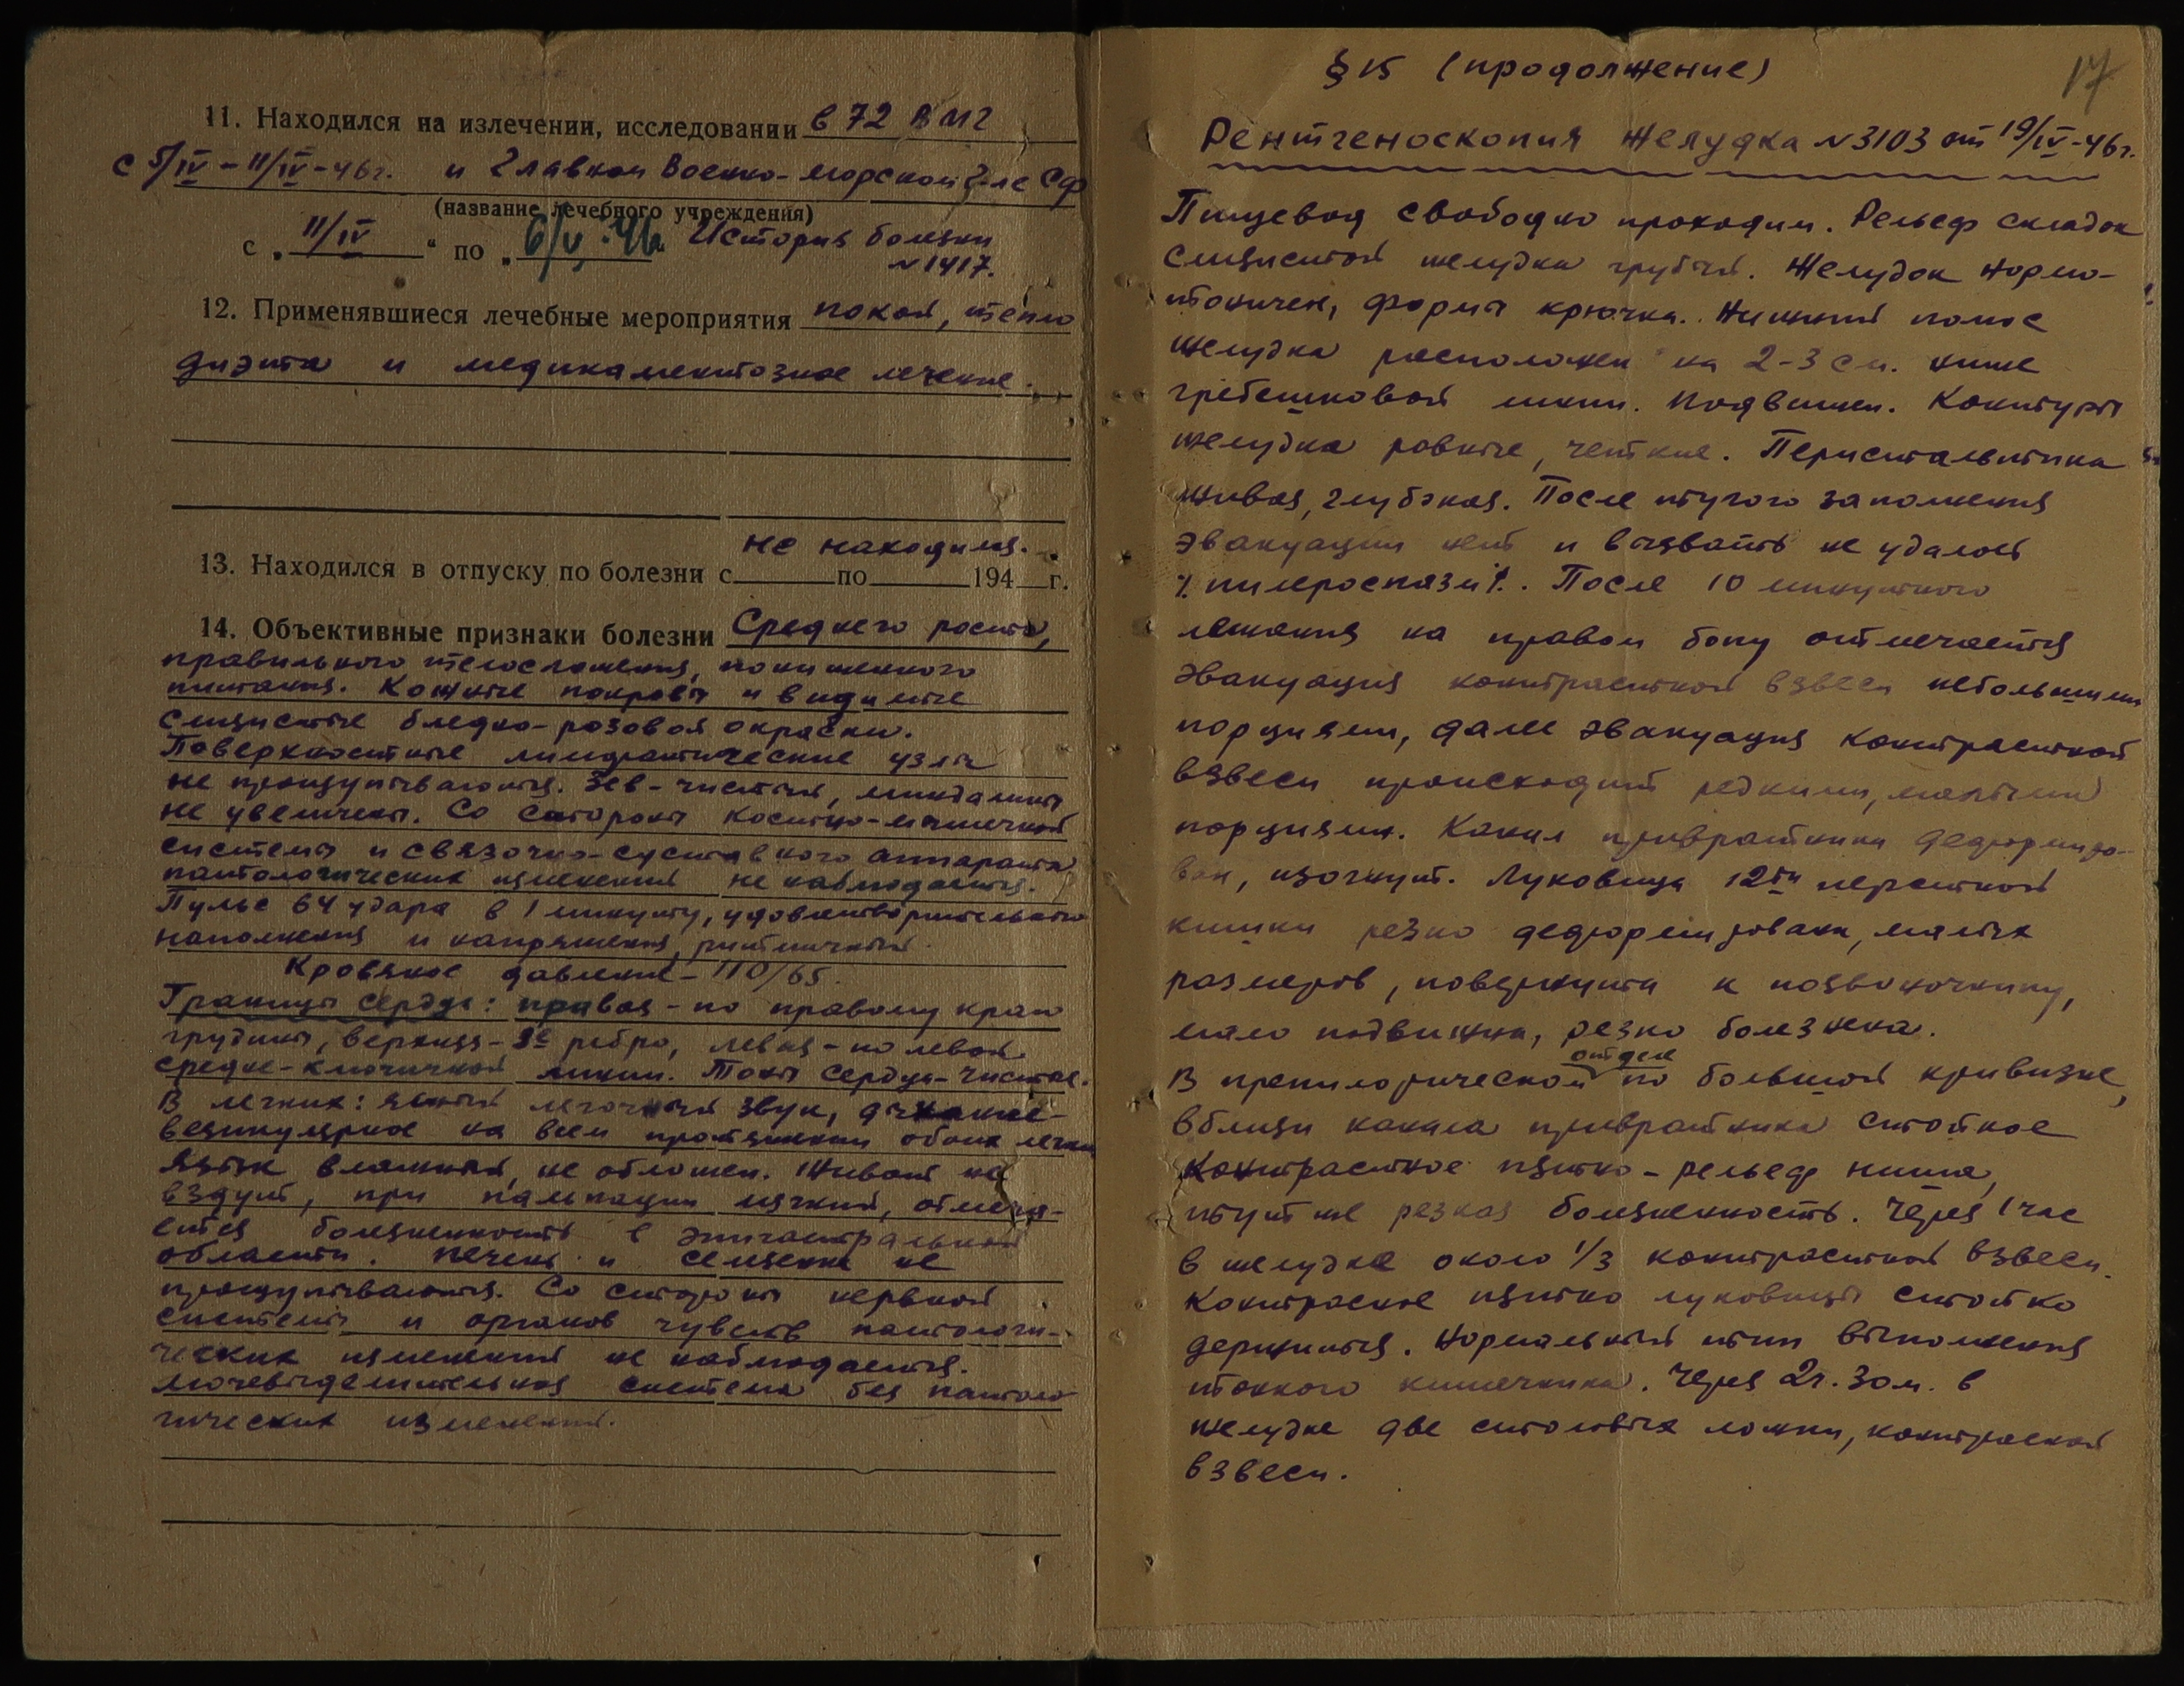 11. Находился на излечении, исследовании в 72 ВМГ
с 5/IV – 11/IV – 46г. и Главном Военно-морском г-ле СФ
(название лечебного учреждения)
с „ 11/IV “ по „ 6/V.46. История болезни
№ 1417.
12. Применявшиеся лечебные мероприятия покой, тепло
диэта и медикаментозное лечение.
не находился.
13. Находился в отпуску по болезни с по 194 г.
14. Объективные признаки болезни Среднего роста,
правильного телосложения, пониженного
питания. Кожные покровы и видимые
слизистые бледно-розовой окраски.
Поверхностные лимфатические узлы
не прощупываются. Зев - чистый, миндалины
не увеличены. Со стороны костно-мышечной
системы и связочно-суставного аппарата
патологических изменений не наблюдается.
Пульс 64 удара в 1 минуту, удовлетворительного
наполнения и напряжения, ритмичный.
Кровяное давление - 110/65.
Границы сердца: правая - по правому краю
грудины, верхняя - 3е ребро, левая - по левой
средне-ключичной линии. Тоны сердца - чистые.
В легких: ясный легочный звук, дыхание -
везикулярное на всем протяжении обоих легких
Язык влажный, не обложен. Живот не
вздут, при пальпации мягкий, отмеча-
ется болезненность в эпигастральной
области. Печень и селезенка не
прощупываются. Со стороны нервной
системы и органов чувств патологи-
ческих изменений не наблюдается.
Мочевыделительная система без патоло-
гических изменений.
§ 15 (продолжение)
17
Рентгеноскопия желудка № 3103 от 19/IV-46г.
Пищевод свободно проходим. Рельеф складок
слизистой желудка грубый. Желудок нормо-
тоничен, форма крючка. Нижний полюс
желудка расположен на 2-3 см. ниже
гребешковой линии. Подвижен. Контуры
желудка ровные, четкие. Перистальтика
живая, глубокая. После тугого заполнения
эвакуации нет и вызвать не удалось
/. пилороспазм /. После 10 минутного
лежания на правом боку отмечается
эвакуация контрастной взвеси небольшими
порциями, далее эвакуация контрастной
взвеси происходит редкими, малыми
порциями. Канал привратника деформиро-
ван, изогнут. Луковица 12ти перстной
кишки резко деформирована, малых
размеров, повернута к позвоночнику,
мало подвижна, резко болезнена.
В препилорическом отделе по большой кривизне,
вблизи канала привратника стойкое
контрастное пятно - рельеф ниша,
тут же резкая болезненность. Через 1 час
в желудке около 1/3 контрастной взвеси.
Контрасное пятно луковицы стойко
держится. Нормальный тип выполнения
тонкого кишечника. Через 2ч. 30м. в
желудке две столовых ложки, контрасной
взвеси.